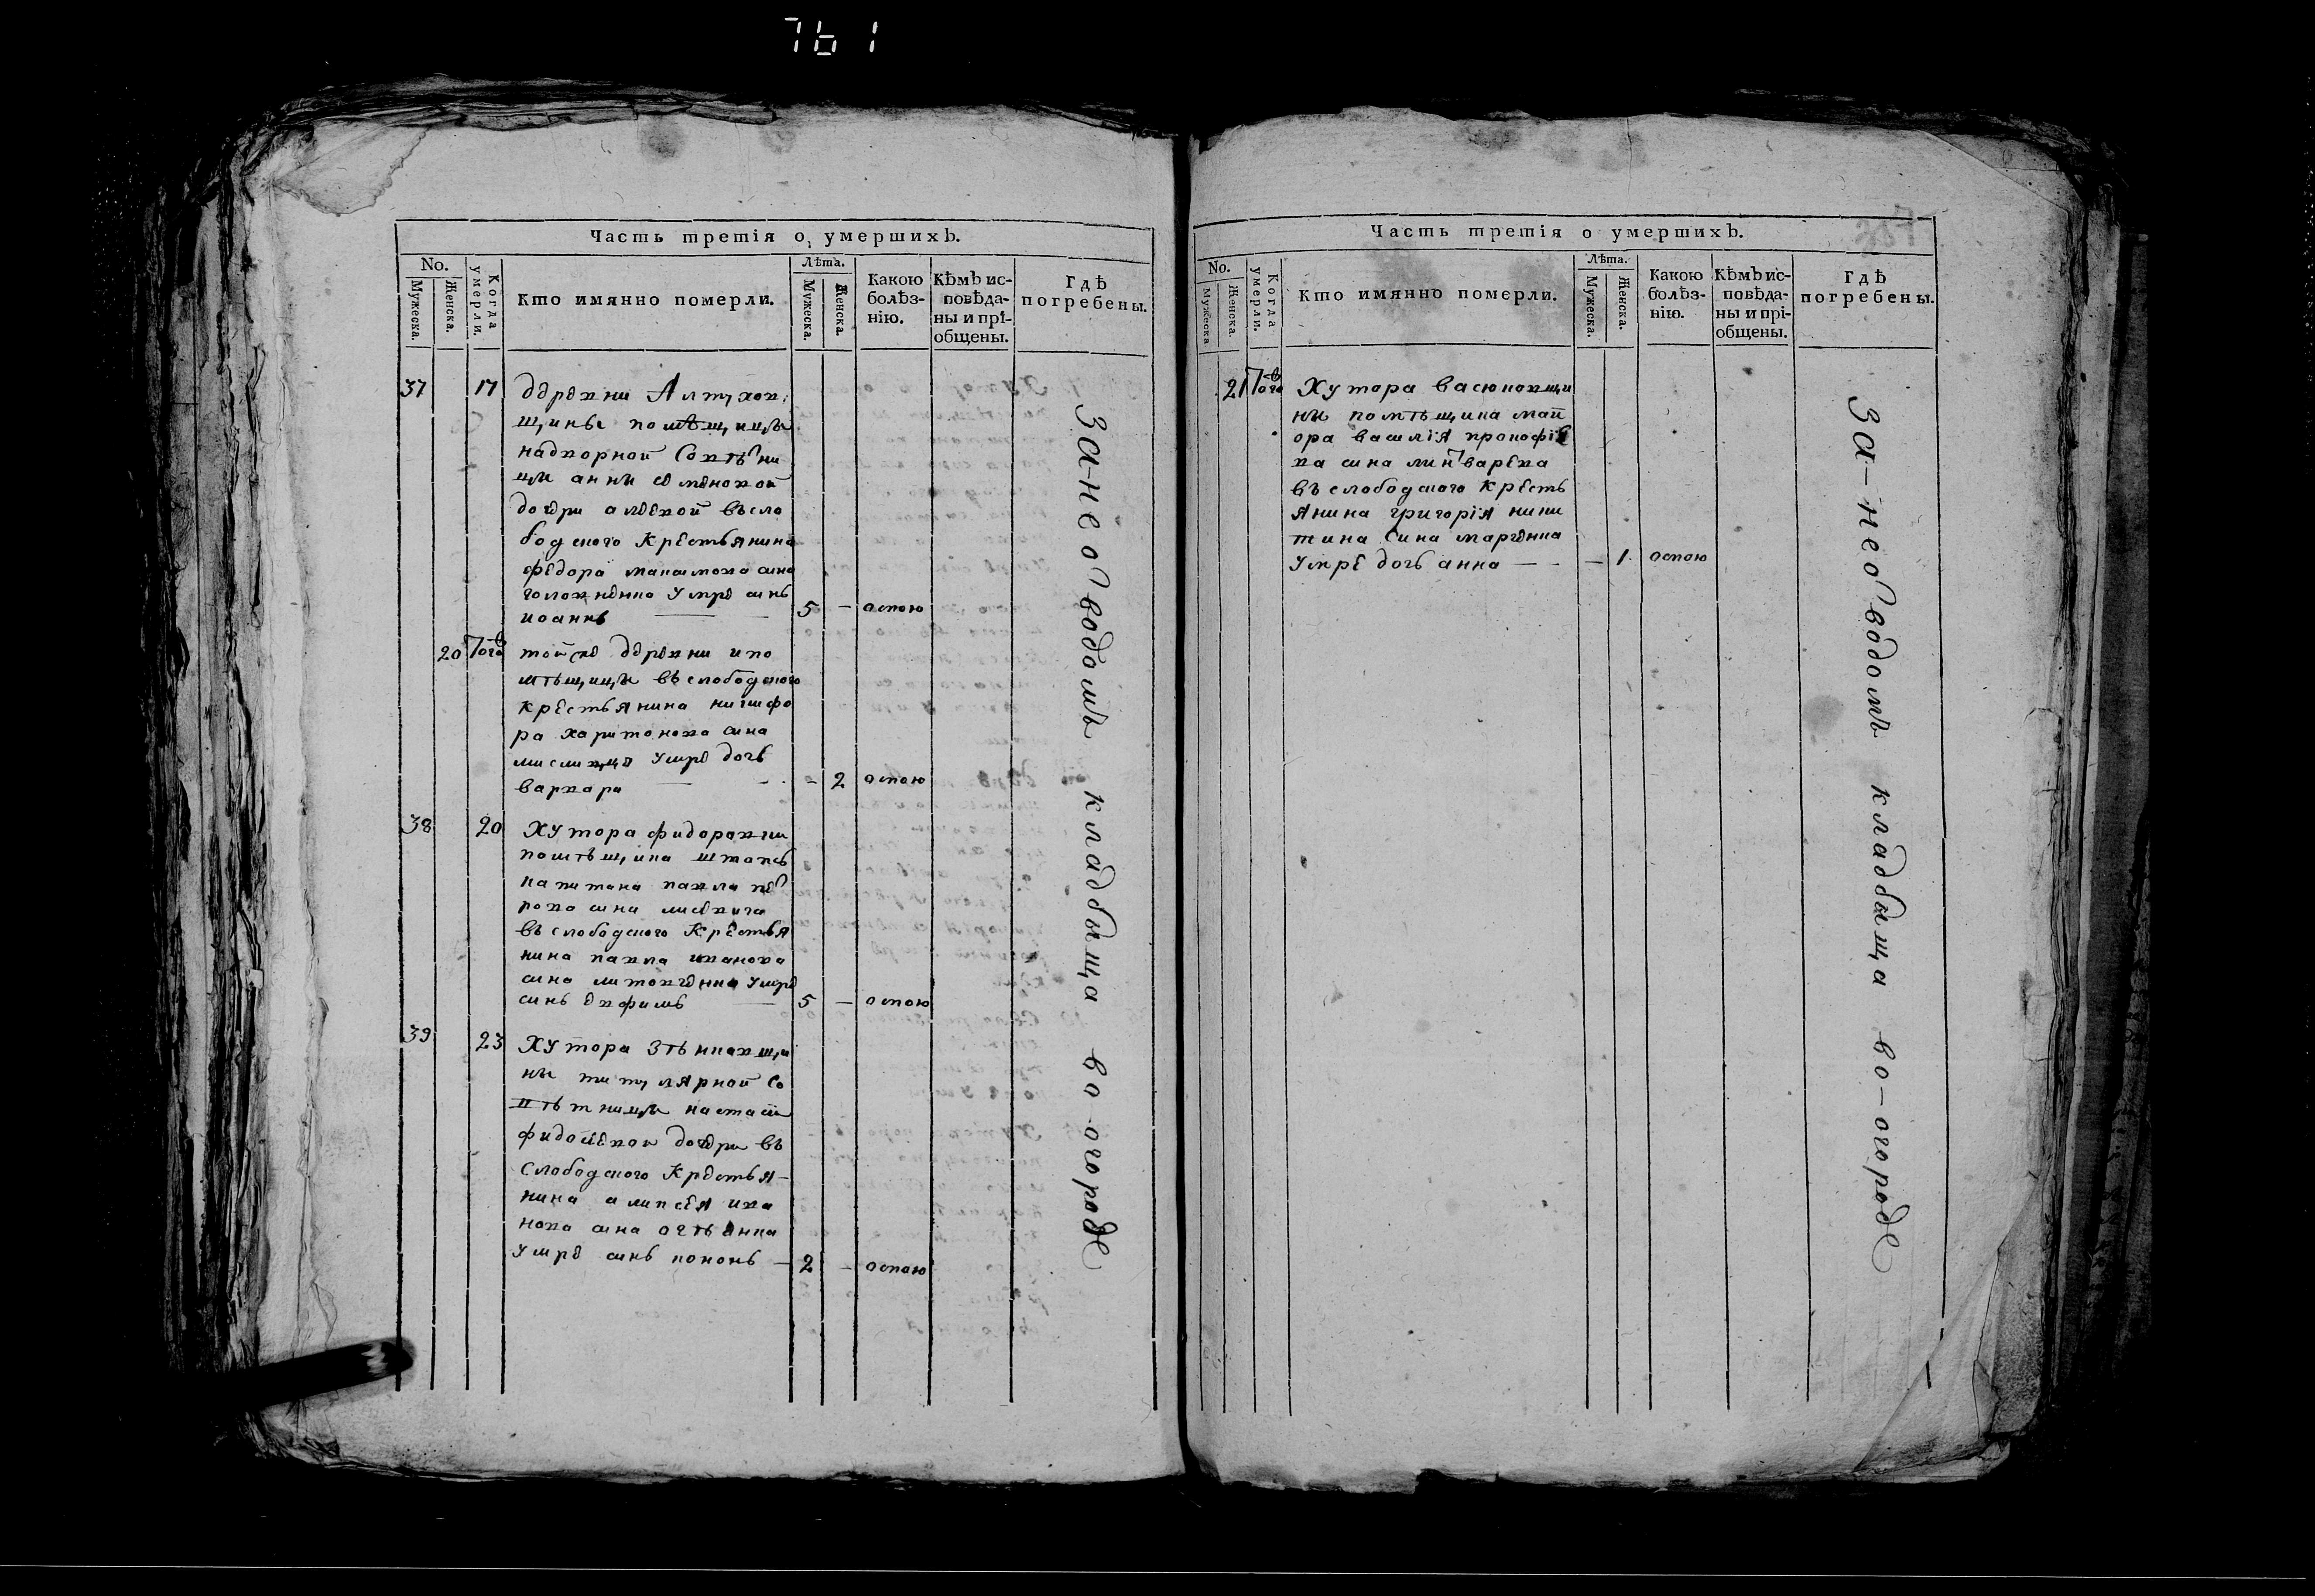 761
Часть третія о умершихЪ.
No.
Мужеска.
Женска.
Когда умерли.
Кто имянно померли.
Лѣта.
Мужеска.
Женска.
Какою болѣз-
нію.
КѢмЪ ис-
повѣда-
ны и прі-
общены.
ГдѢ
погребены.
37 17 деревни Алтухов
щины помѣщици
надворной совѣтни
ци анни семеновой
дочери въсло
бодского крестьянина
федора максимова сина
умре синъ
иоаннъ 5 — оспою
20 Того тойже деревни и по
мѣщици въслободского
крестьянина никифо
ра харитонова сина
умре дочь
варвара — 2 оспою
38 20 Хутора фидоровки
помѣщика штапсъ
капитана павла пет
рова сина
въслободского крестья
нина павла иванова
сина умре
синъ евфимъ 5 — оспою
39 23 Хутора зѣнковщи
ни титулярной со
вѣтници настасіи
дочери въ
слободского крестья-
нина аликсѣя ива
нова сина
умре синъ кононъ — 2 — оспою
За-неотводомъ кладбыща во огороде
Часть третія о умершихЪ.
No.
Мужеска
Женска.
Когда умерли.
Кто имянно померли.
Лѣта.
Мужеска.
Женска.
Какою
болѣз-
нію.
КѢмЪ ис-
повѣда-
ны и прі-
общены.
ГдѢ
погребены.
21 Того Хутора васюковщи
ни помѣщика маи
ора василія прокофіе
ва сина линтварева
въслободского кресть
янина григорія ники
тина сина марченка
умре дочь анна — — 1 оспою
За-неотводомъ кладбыща во-огороде